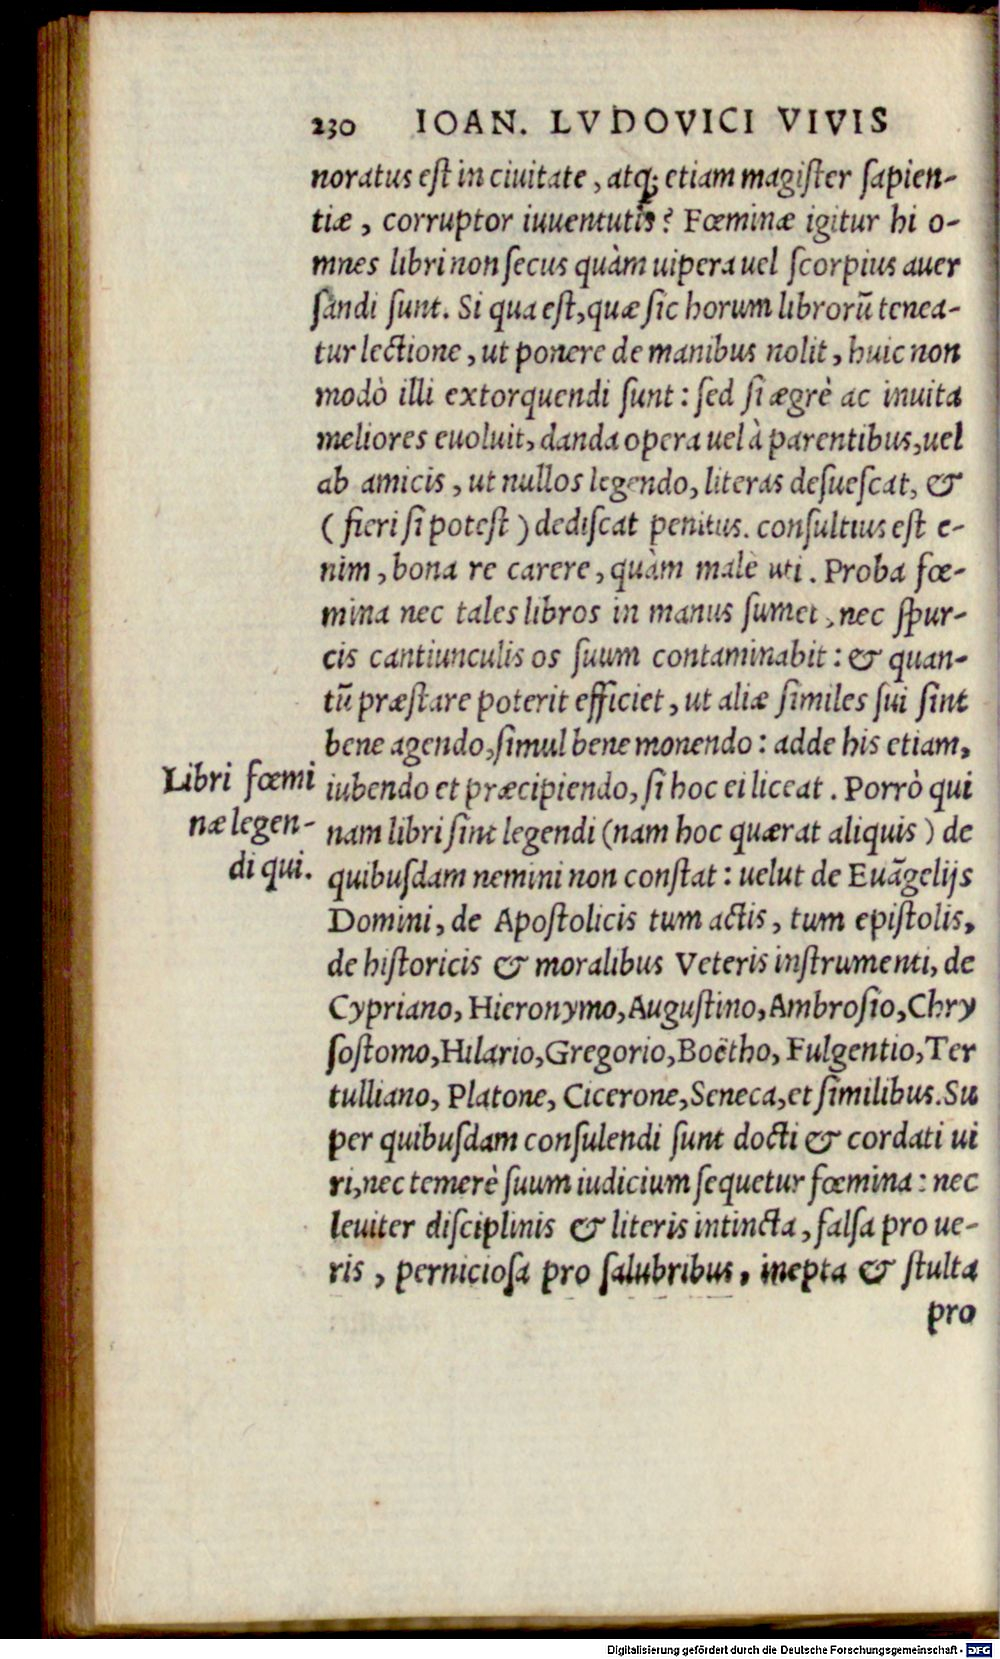 230 IOAN. LVDOVICI VIVIS
noratus eſt in ciuitate, atq; etiam magiſter ſapien-
tiæ, corruptor iuuentutis? Fœminæ igitur hi o-
mnes libri non ſecus quàm uipera uel ſcorpius auer
ſandi ſunt. Si qua eſt, quæ ſic horum librorū tenea-
tur lectione, ut ponere de manibus nolit, huic non
modò illi extorquendi ſunt: ſed ſi ægrè ac inuita
meliores euoluit, danda opera uel à parentibus, uel
ab amicis, ut nullos legendo, literas deſueſcat, &
(fieri ſi poteſt) dediſcat penitus. conſultius eſt e-
nim, bona re carere, quàm malè uti. Proba fœ-
mina nec tales libros in manus ſumet, nec ſpur-
cis cantiunculis os ſuum contaminabit: & quan-
tū præſtare poterit efficiet, ut aliæ ſimiles ſui ſint
bene agendo, ſimul bene monendo: adde his etiam,
iubendo et præcipiendo, ſi hoc ei liceat. Porrò qui
nam libri ſint legendi (nam hoc quærat aliquis) de
quibuſdam nemini non conſtat: uelut de Euāgelijs
Domini, de Apoſtolicis tum actis, tum epiſtolis,
de hiſtoricis & moralibus Veteris inſtrumenti, de
Cypriano, Hieronymo, Auguſtino, Ambroſio, Chry
ſoſtomo, Hilario, Gregorio, Boëtho, Fulgentio, Ter
tulliano, Platone, Cicerone, Seneca, et ſimilibus. Su
per quibuſdam conſulendi ſunt docti & cordati ui
ri, nec temerè ſuum iudicium ſequetur fœmina: nec
leuiter diſciplinis & literis intincta, falſa pro ue-
ris, pernicioſa pro ſalubribus, inepta & ſtulta
pro
Libri fœmi
næ legen-
di qui.
Digitalisierung gefördert durch die Deutsche Forschungsgemeinschaft - DFG